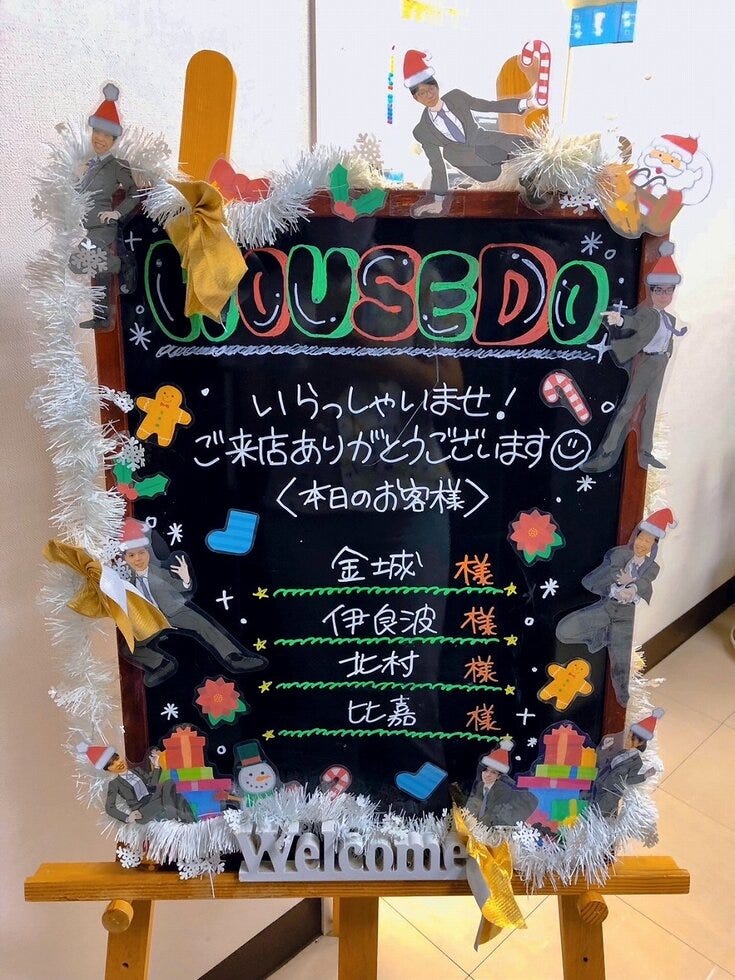 HOUSEDO
いらっしゃいませ!
ご来店ありがとうございます
〈本日のお客様〉
金城 様
伊良波 様
北村 様
比嘉 様
Welcome